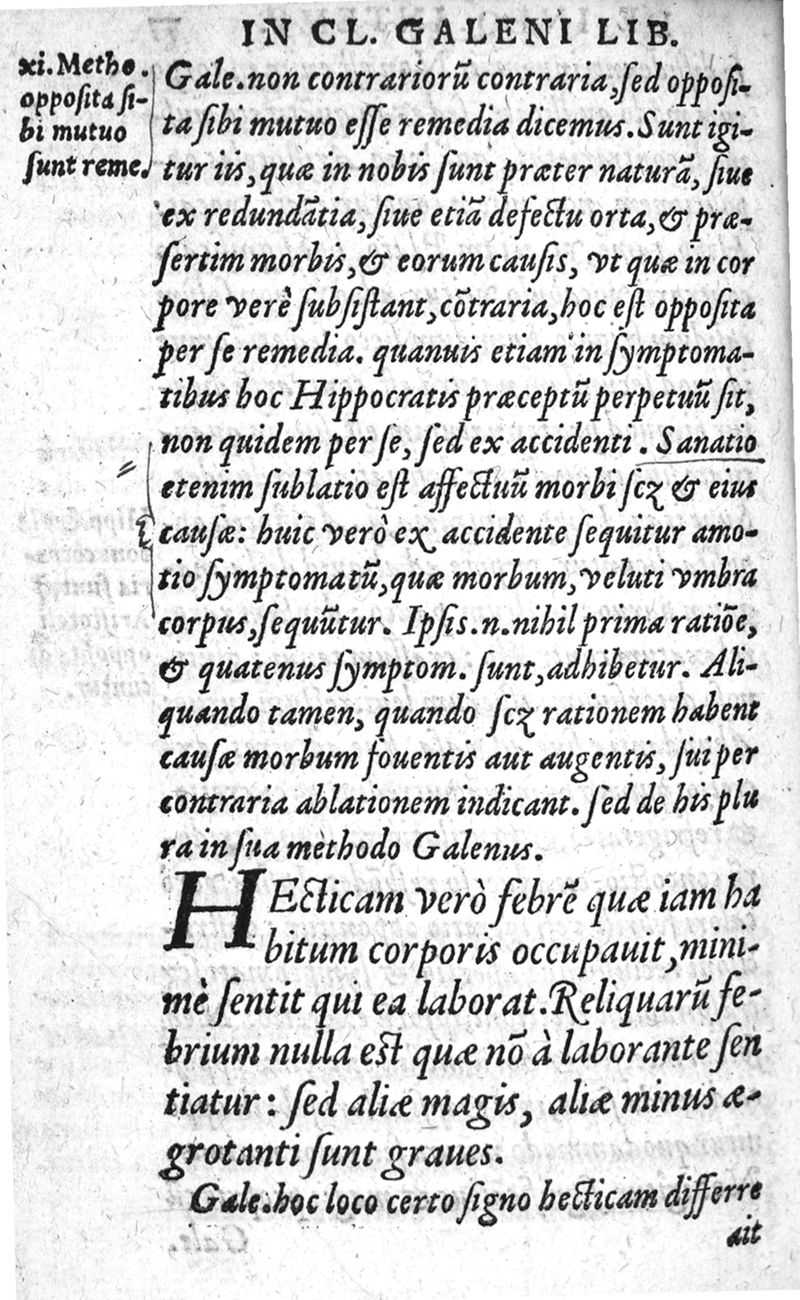 IN CL. GALENI LIB.
xi. Metho.
opposita ſi-
bi mutuo
ſunt reme.
Gale. non contrariorū contraria, ſed oppoſi-
ta ſibi mutuo eſſe remedia dicemus. Sunt igi-
tur iis, quæ in nobis ſunt præter naturā, ſiue
ex redundātia, ſiue etiā defectu orta, & præ-
ſertim morbis, & eorum cauſis, vt quæ in cor
pore verè ſubſiſtant, cōtraria, hoc eſt oppoſita
per ſe remedia. quanuis etiam in ſymptoma-
tibus hoc Hippocratis præceptū perpetuū ſit,
non quidem per ſe, ſed ex accidenti. Sanatio
etenim ſublatio eſt affectuū morbi ſcꝫ & eius
cauſæ: huic verò ex accidente ſequitur amo-
tio ſymptomatū, quæ morbum, veluti vmbra
corpus, ſequūtur. Ipſis .n. nihil prima ratiōe,
& quatenus ſymptom. ſunt, adhibetur. Ali-
quando tamen, quando ſcꝫ rationem habent
cauſæ morbum fouentis aut augentis, ſui per
contraria ablationem indicant. ſed de his plu
ra in ſua methodo Galenus.
HEcticam verò febrē quæ iam ha
bitum corporis occupauit, mini-
mè ſentit qui ea laborat. Reliquarū fe-
brium nulla eſt quæ nō à laborante ſen
tiatur: ſed aliæ magis, aliæ minus æ-
grotanti ſunt graues.
Gale. hoc loco certo ſigno hecticam differre
ait